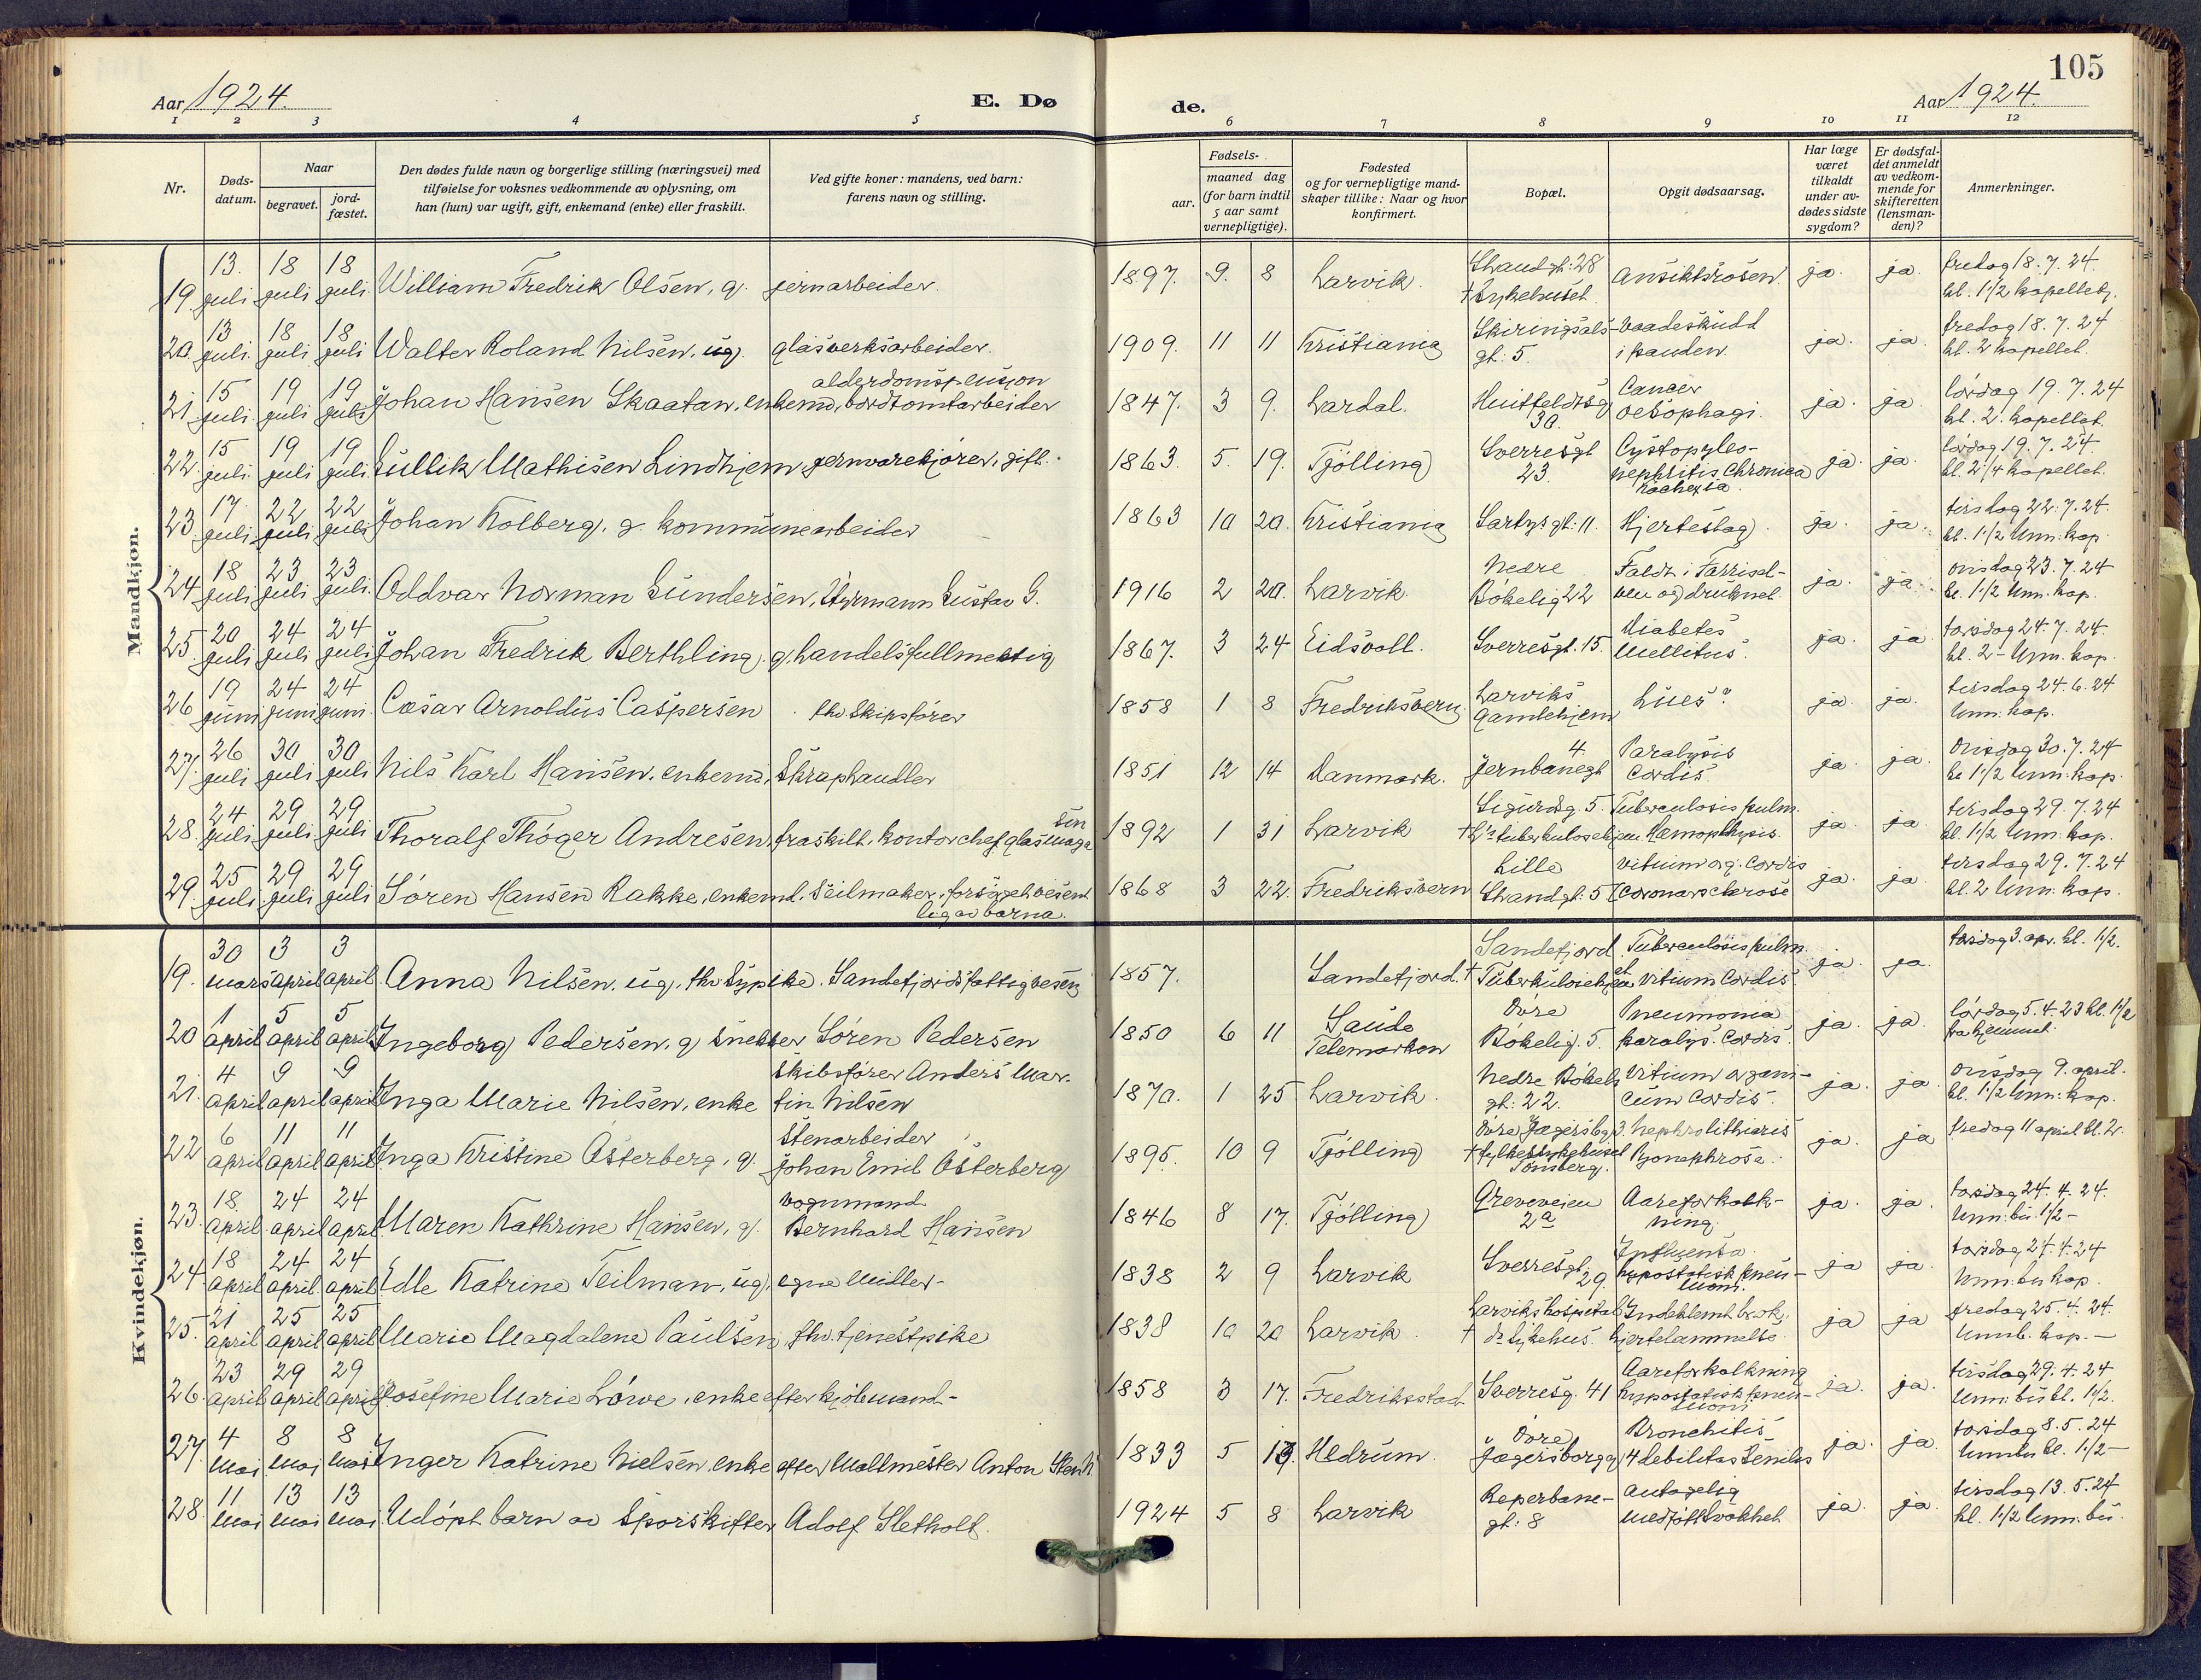 105
Aar 1924. E. Dø de. Aar 1924.
1 2 3 4 5 6 7 8 9 10 11 12
Nr. Døds-datum. Naar begravet. jord-fæstet. Den dødes fulde navn og borgerlige stilling (næringsvei) med tilføielse for voksnes vedkommende av oplysning, om han (hun) var ugift, gift, enkemand (enke) eller fraskilt. Ved gifte koner: mandens, ved barn: farens navn og stilling. Fødsels- aar. maaned dag (for barn indtil 5 aar samt vernepligtige). Fødested og for vernepligtige mand-skaper tillike: Naar og hvor konfirmert. Bopæl. Opgit dødsaarsag. Har læge været tilkaldt under av-dødes sidste sygdom? Er dødsfal-det anmeldt av vedkom-mende for skifteretten (lensman-den)? Anmerkninger.
Mandkjøn.
19 13. juli 18 juli 18 juli. William Fredrik Olsen, g. jernarbeider. 1897. 9. 8 Larvik. Strandgt: 28 † Sykehuset. Ansiktsrosen. ja. ja. fredag 18.7.24. kl. 1 1/2 kapellet.
20. 13 juli. 18 juli 18 juli Walter Roland Nilsen, ug. glasverksarbeider. 1909. 11 11 Kristiania Skiringsals-gt: 5. Vaadeskudd i panden. ja. ja. fredag 18.7.24 kl. 2 kapellet.
21. 15 juli. 19 juli 19 juli Johan Hansen Skaatan, enkem., bordtomtarbeider alderdomspension 1847. 3 9. Lardal. Huitfeldtsg 30. Cancer oesophagi. ja. ja. lördag 19.7.24 kl. 2. kapellet.
22. 15 juli. 19 juli 19 juli. Gullik Mathisen Lindhjem jernvarekjører, gift. 1863. 5. 19. Tjölling Sverresgt 23. Cystopyleo-nephritis chronica Kachexia. ja. ja. lördag 19.7.24. kl. 2 1/4 kapellet.
23 17. juli 22 juli 22 juli Johan Kolberg, g. kommunearbeider 1863 10 20. Kristiania gt: 11. Hjerteslag. ja. ja. tirsdag 22.7.24. kl. 1 1/2 Unn. kap.
24 18 juli 23 juli 23 juli. Oddvar Norman Gundersen, Styrmann Gustav G. 1916 2 20. Larvik. Nedre Bökelig 22 Faldt i Farrisel-ven og druknet. ja. ja. onsdag 23.7.24 kl. 1 1/2 Unn. kap.
25 20 juli 24 juli 24 juli Johan Fredrik Berthling. g. handelsfullmektig 1867. 3 24 Eidsvoll. Sverresgt. 15. Diabetes Mellitus. ja. ja torsdag 24.7.24. kl. 2 - Unn. kap.
26 19 juni 24 juni 24 juni. Cæsar Arnoldus Caspersen fhv Skipsförer 1858 1 8 Fredriksvern Larviks Gamlehjem Lues? ja. ja. tirsdag 24.6.24 Unn. kap.
27. 26 juli 30 juli 30 juli Nils Karl Hansen, enkem., Skraphandler 1851 12 14 Danmark. Jernbanegt 4. Paralysis Cordis ja. ja. Onsdag 30.7.24 kl 1 1/2 Unn. kap.
28. 24 juli 29 juli 29 juli Thoralf Thöger Andresen, fraskilt, kontorchef glasmaga sin 1892 1 31 Larvik Sigurdsg. 5. † tuberkulosehjem Tuberculosis pulm. Hæmophthysis. ja. ja. tirsdag 29.7.24 kl. 1 1/2 Unn. kap.
29. 25 juli. 29 juli 29 juli Sören Hansen Rakke, enkemd. Seilmaker, forsörget vesent lig av barna. 1868 3 22. Fredriksvern Lille Strandgt: 5 Vitium org. Cordis (Coronarsclerose ja. ja. tirsdag 29.7.24 kl. 2 Unn. kap.
Kvindekjøn.
19. 30 mars 3 april 3 april Anna Nilsen. ug. fhv Sypike. Sandefjords fattigvesen 1857. Sandefjord. Sandefjord † Tuberkulosehjem Tuberculosis pulm. et Vitium Cordis. ja. ja. torsdag 3. apr. kl. 1 1/2.
20 1 april 5 april 5 april Ingeborg Pedersen, g snekker Sören Pedersen 1850 6 11 Saude Telemarken Övre Bökelig. 5. Pneumonia paralys. Cordis. ja. ja. lördag 5.4.23 kl. 1 1/2 fra hjemmet.
21. 4 april 9 april 9 april Inga Marie Nilsen, enke Skibsförer Anders Mar-tin Nilsen 1870. 1 25 Larvik. Nedre Bökelig gt: 22. Vitium organi-cum Cordis. ja. ja. onsdag 9. april. kl. 1 1/2 Unn. kap.
22 6 april 11 april 11 april Inga Kristine Österberg, g. Stenarbeider Johan Emil Österberg 1895. 10 9 Tjölling Övre Jægersbg 3. † Fylkessykehuset Tönsberg. Nephrolithiasis Pyonephrose. ja. ja fredag 11 april kl. 2.
23. 18. april 24 april 24 april Maren Kathrine Hansen, g. vognmand Bernhard Hansen 1846 8 17. Tjölling Greveveien 2a Aareforkalk-ning. ja. ja. torsdag 24.4.24. Unn. bü. 1 1/2 -
24. 18 april 24 april 24 april Edle Katrine Teilman, ug. egne Midler - 1838 2 9 Larvik Sverresgt. 29. Influensa hypostatisk pneu-moni. ja ja. torsdag 24.4.24 Unn. bü kap.
25. 21 april 25 april 25 april Marie Magdalene Paulsen fhv. tjenestpike 1838 10 20 Larvik. Larviks hospital † do Sykehus. Indeklemt brok, hjertelammelse. ja ja fredag 25.4.24. Unnb. kap. -
26. 23 april 29 april 29 april Josefine Marie Löwe, enke efter kjöbmand - 1858 3 17. Fredriksstad Sverresg. 41 Aareforkalkning hypostatisk pneu-moni ja. ja. tirsdag 29.4.24 Unn. bü kl. 1 1/2.
27. 4 mai 8 mai 8 mai Inger Katrine Nielsen, enke efter Maltmester Anton 1833 5 Hedrum. Övre Jægersborgg 4 Bronchitis debilitas senilis ja. ja. torsdag 8.5.24 Unnbü kl. 1 1/2 -
28. 11 mai 13 mai 13 mai. Udöpt barn av Sporskifter Adolf Sletholt. 1924 5 8 Larvik Reperbane-gt: 8 Antagelig medfött svakhet ja. ja. tirsdag 13.5.24 kl. 1 1/2 Unn. bü.